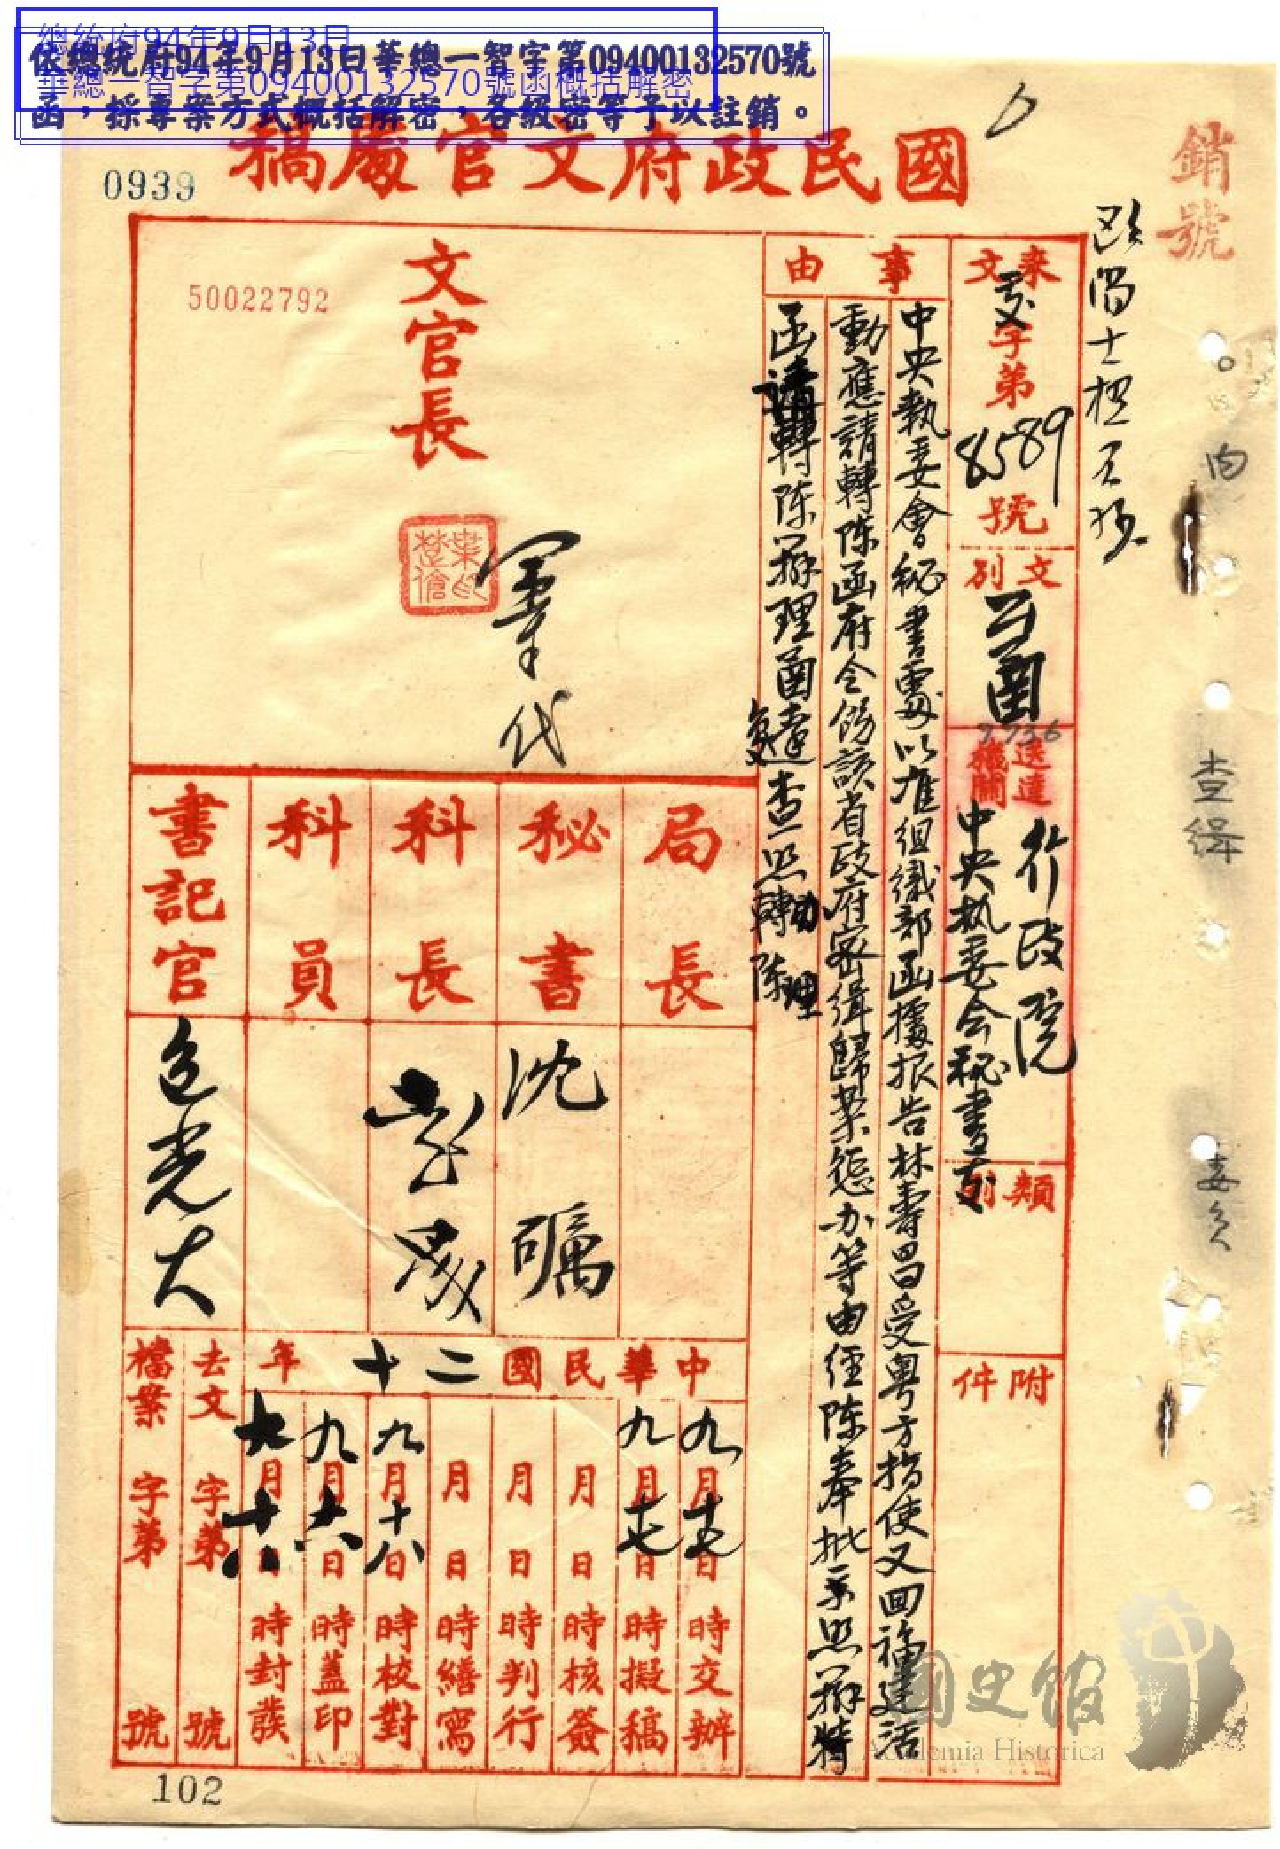 總統府94年9月13日
華總一智字第09400132570號函概括解密
依總統府94年9月13日華總一智字第09400132570號
函，採專案方式概括解密，各級密等予以註銷。
銷號
國民政府文官處稿
0939
50022792
來文
字第8589號
文別
公函
7736
送達機關
行政院
中央執委會秘書處
類別
附件
事由
中央執委會秘書處以准組織部函據報告林壽昌受粵方指使又回福建活
動應請轉陳函府令飭該省政府密緝歸案懲办等由經陳奉批示照辦特
函請轉陳辦理函達查照轉陳
办理
文官長
代
局長
秘書
沈礪
科長
科員
書記官
中華民國二十年
九月十七日時交辦
九月十七日時擬稿
月日時核簽
月日時判行
月日時繕寫
九月十八日時校對
九月十八日時蓋印
九月十八日時封發
去文字第號
檔案字第號
查緝
102
國史館
Academia Historica